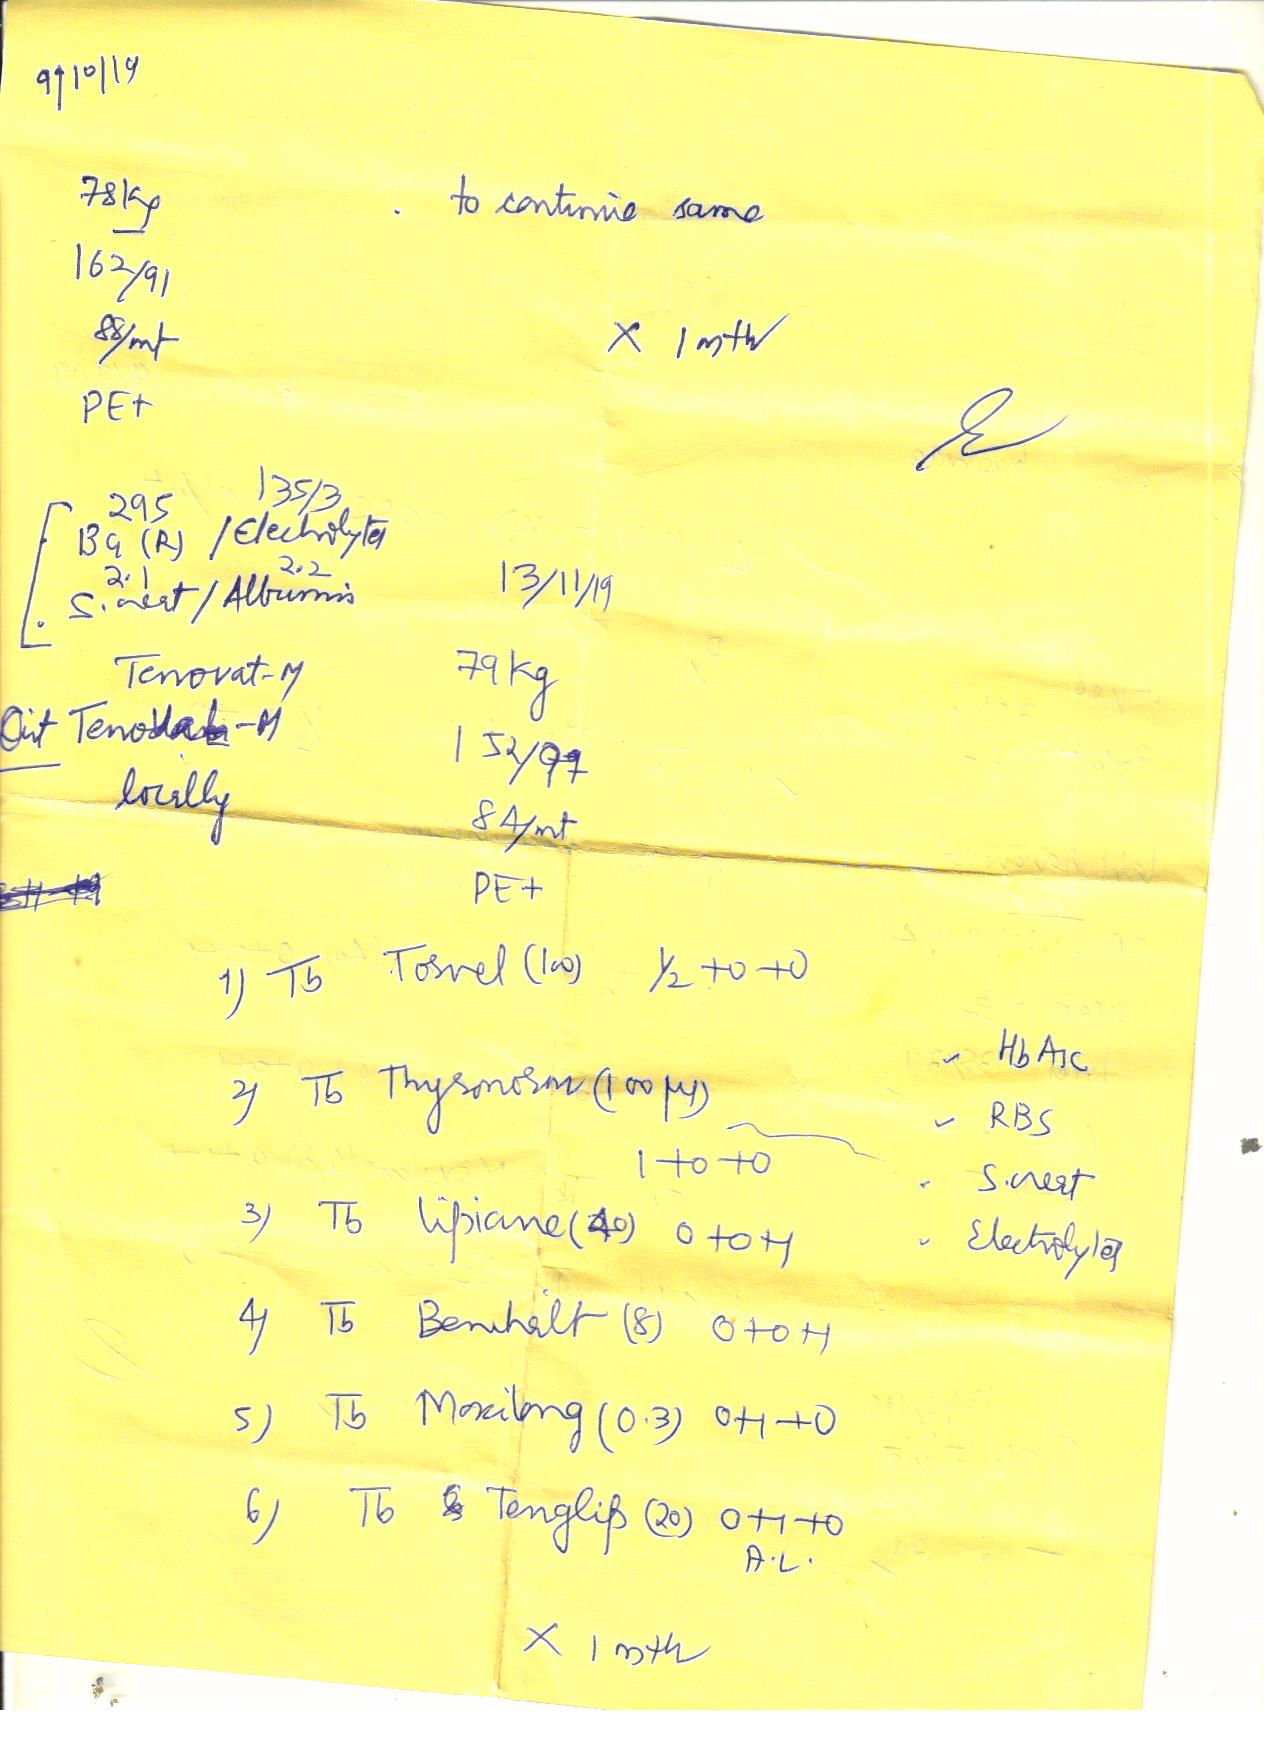 9/10/19
78kg
to continue same
162/91
88/mt
x 1 mth
PE+
295 135/3
BG (R) / Electrolytes
2.1 2.2
S. creat / Albumin
13/11/19
Tenovat-M
79 kg
Oint Tenovate-M
152/97
locally
84/mt
PE+
1) Tb (100) 1/2 +0 +0
2) Tb Thyronorm (100 µg)
1 +0 +0
HbA1c
RBS
S. creat
Electrolytes
3) Tb Lipicure (40) 0 +0 +1
4) Tb (8) 0 +0 +1
5) Tb Moxilong (0.3) 0 +1 +0
6) Tb Tenglip (20) 0 +1 +0
A.L.
x 1 mth